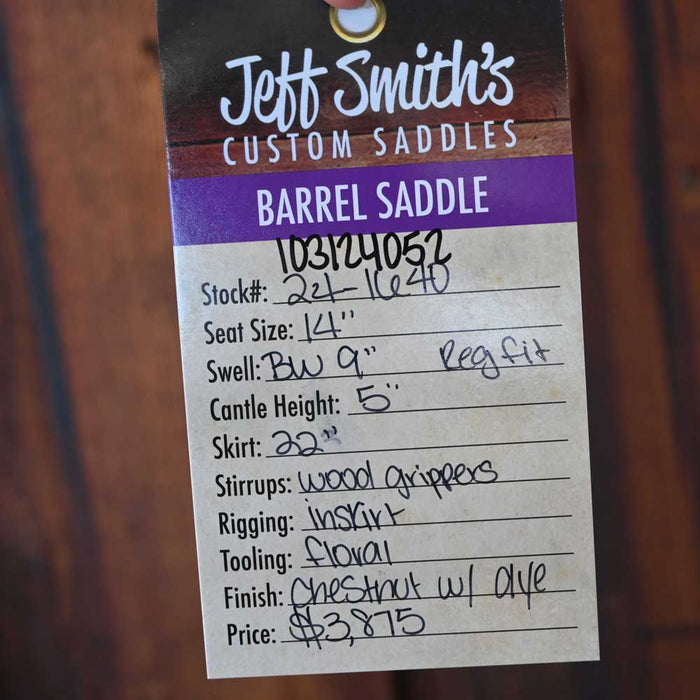 Jeff Smith's
CUSTOM SADDLES
BARREL SADDLE
103124052
Stock#: 24-1640
Seat Size: 14"
Swell: BW 9" Reg fit
Cantle Height: 5"
Skirt: 22"
Stirrups: wood grippers
Rigging: inskirt
Tooling: floral
Finish: Chestnut w/ dye
Price: $3,875